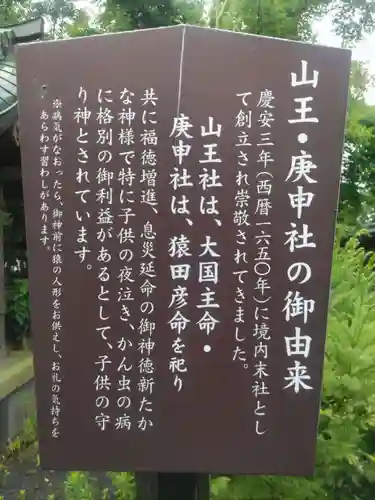 山王・庚申社の御由来
慶安三年（西暦一六五〇年）に境内末社とし
て創立され崇敬されてきました。
山王社は、大国主命・
庚申社は、猿田彦命を祀り
共に福徳増進、息災延命の御神徳新たか
な神様で特に子供の夜泣き、かん虫の病
に格別の御利益があるとして、子供の守
り神とされています。
※病気がなおったら、御神前に猿の人形をお供えし、お礼の気持ちを
あらわす習わしがあります。